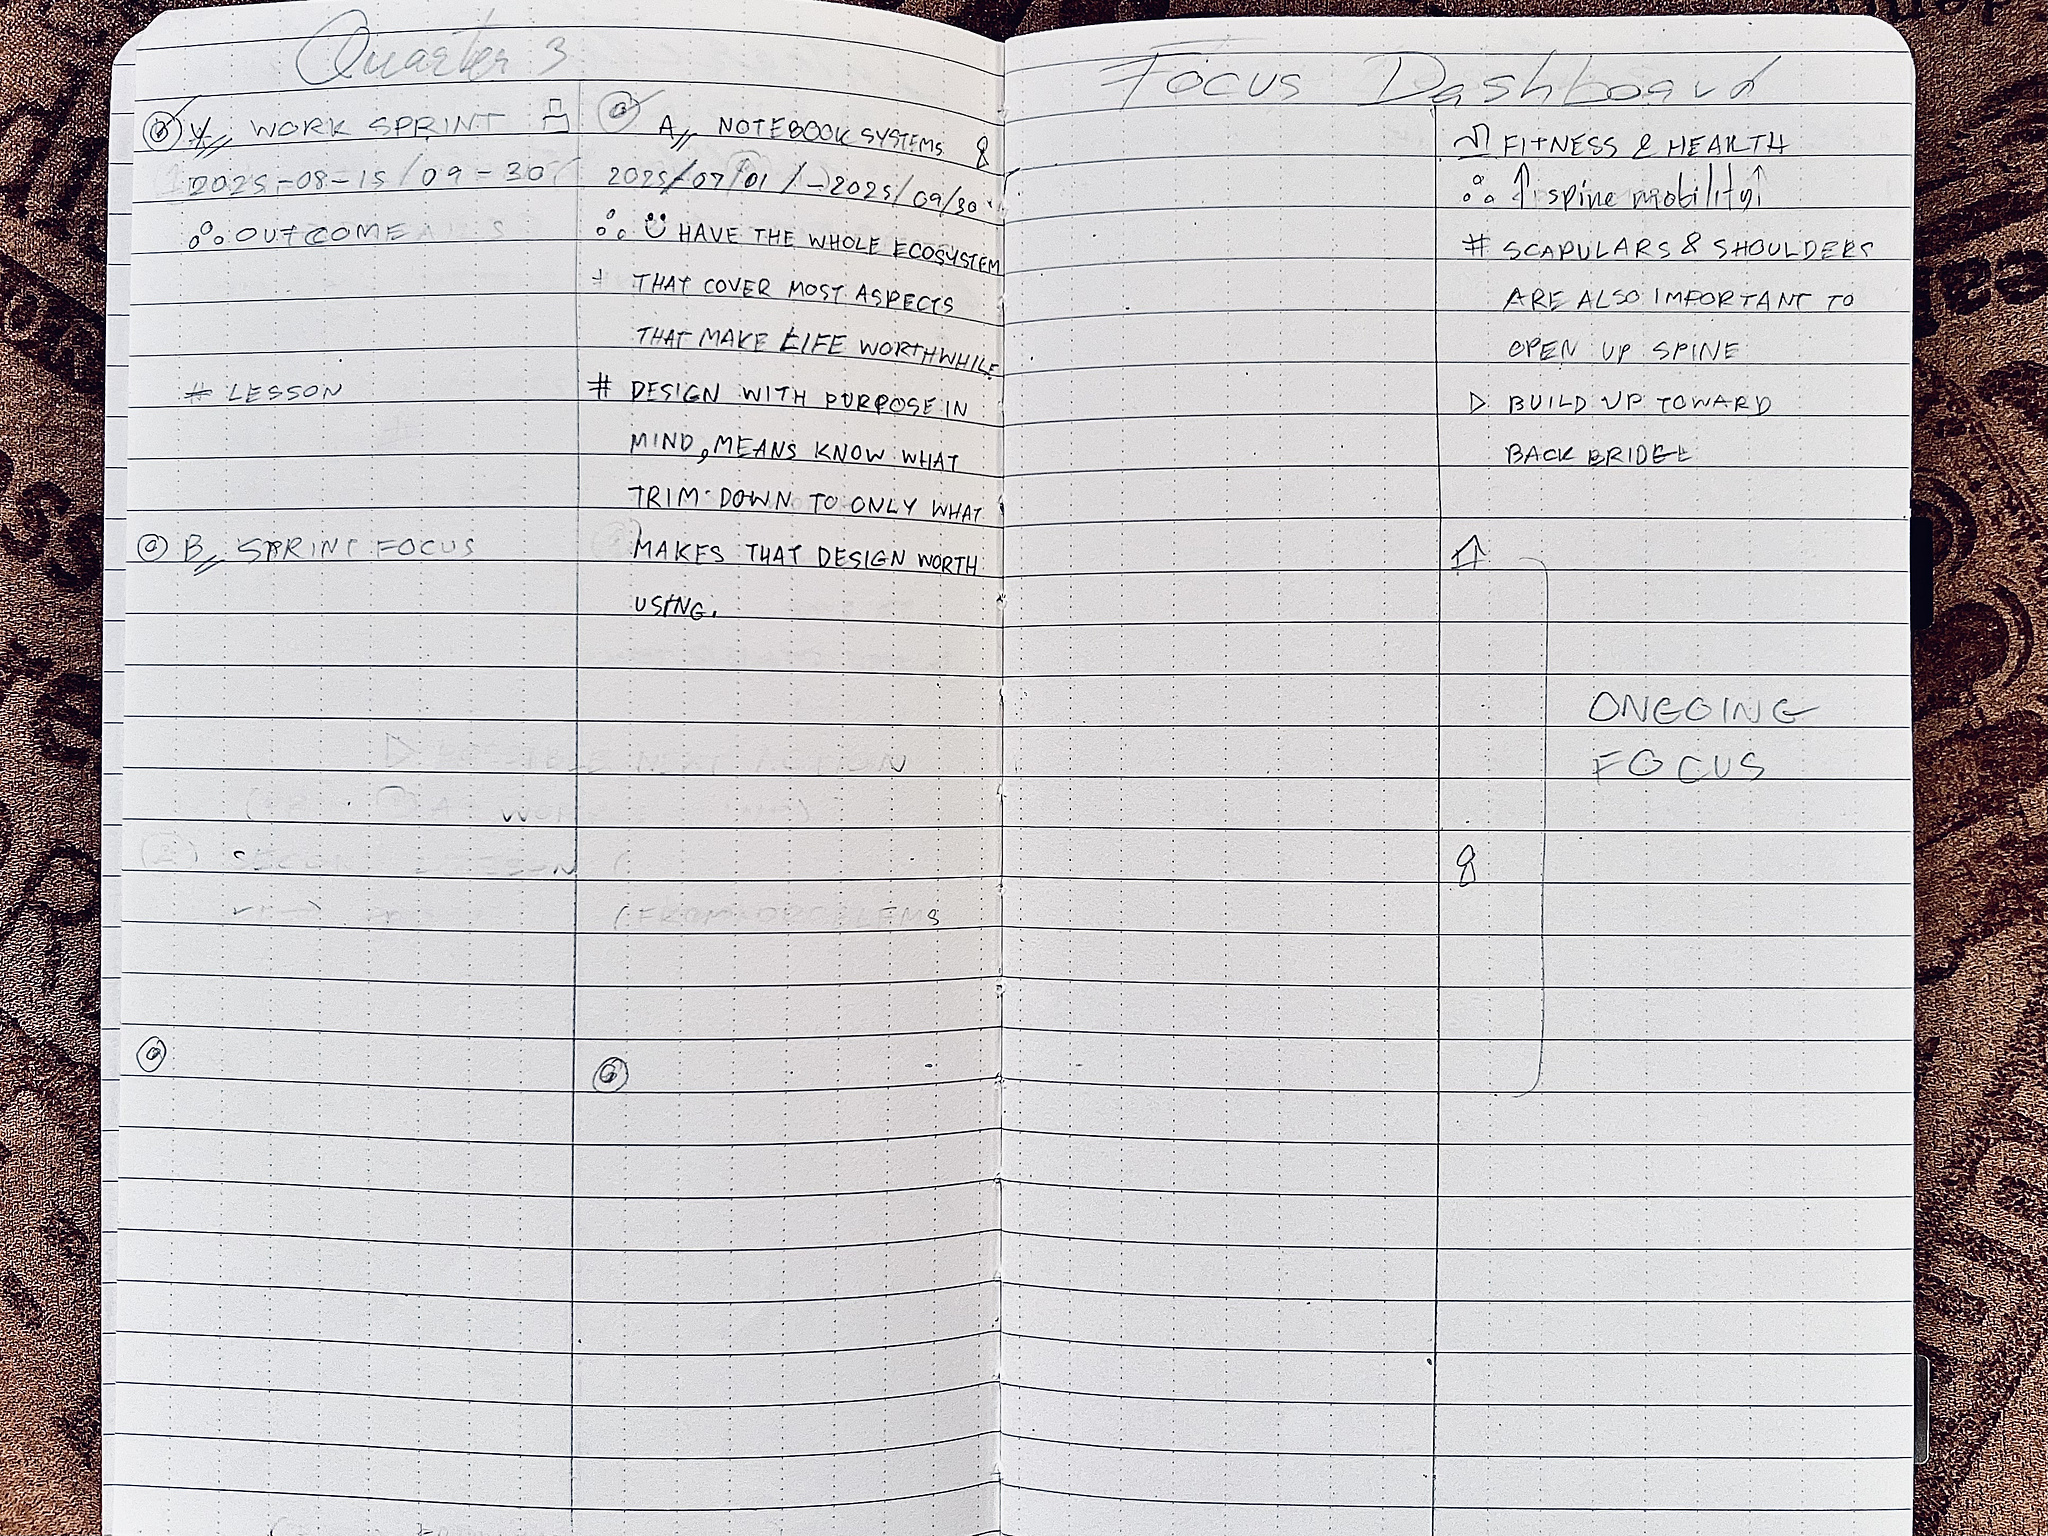 Quarter 3
WORK SPRINT
2025-08-15/09-30
OUTCOME
# LESSON
B// SPRINT FOCUS
A// NOTEBOOK SYSTEMS
2025/07/01/-2025/09/30
HAVE THE WHOLE ECOSYSTEM
THAT COVER MOST ASPECTS
THAT MAKE LIFE WORTHWHILE
# DESIGN WITH PURPOSE IN
MIND, MEANS KNOW WHAT
TRIM DOWN TO ONLY WHAT
MAKES THAT DESIGN WORTH
USING.
Focus Dashboard
FITNESS & HEARTH
↑ spine mobility↑
# SCAPULARS & SHOULDERS
ARE ALSO IMPORTANT TO
OPEN UP SPINE
▷ BUILD UP TOWARD
BACK BRIDGE
ONGOING
FOCUS